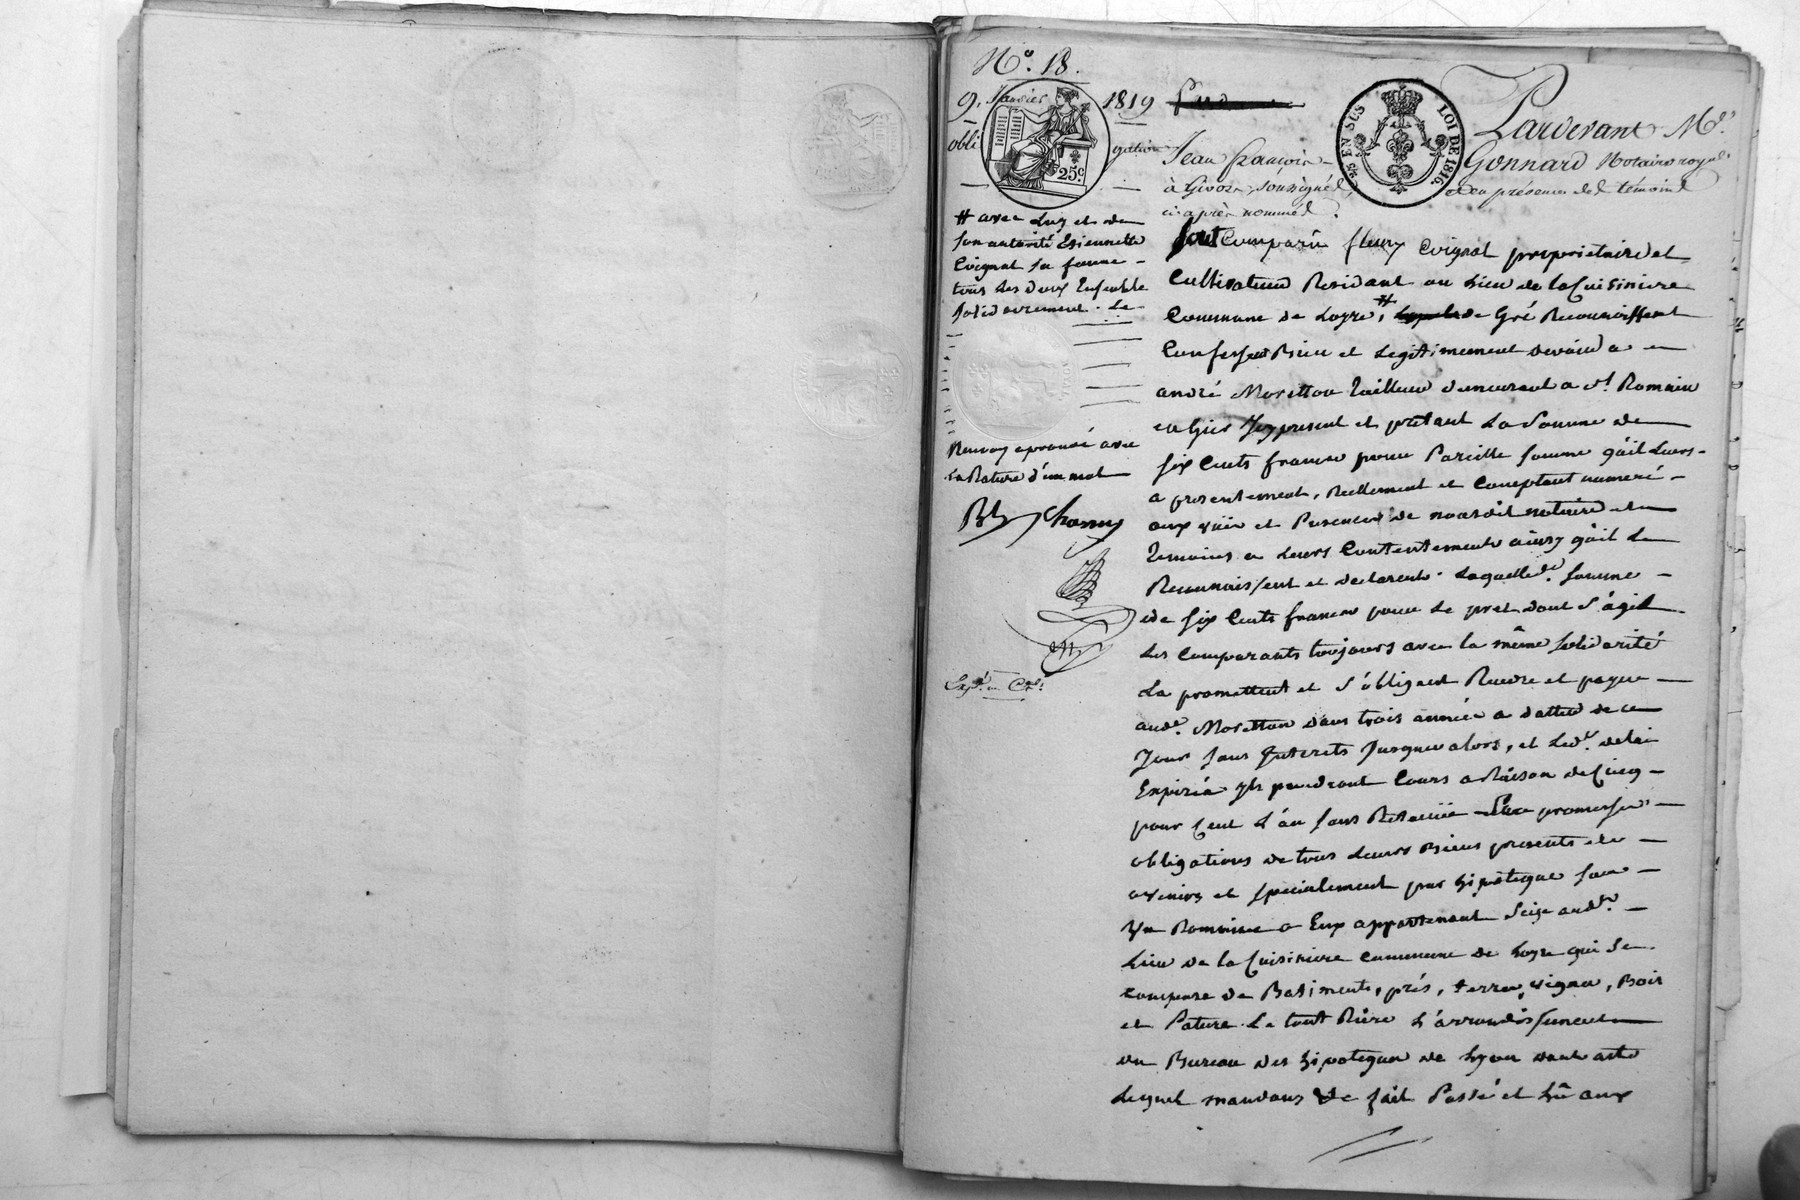 N.º 18.
9. Janvier 1819
obligation
25 c.
5/4 EN SUS LOI DE 1816.
Pardevant M.e
Jean françois Gonnard Notaire royal
à Givors soussigné, et en présence des témoins
ci-après nommés.
# avec Luy et de
son autorité Etiennette
Coignat sa femme
tous Les deux Ensemble
solidairement. De
Renvoy aprouvé avec
La Rature d'un mot
Sont Comparu fleury Coignat proprietaire et
Cultivateur Residant au Lieu de la Cuisiniere
Commune de Loyre, # de Gré Reconnoissent
Confessent Bien et Legitimement devoir a
andré Moretton Tailleur demeurent a St. Romain
en Gier Icy present et pretant La Somme de
six Cents francs pour Pareille somme qu'il Leurs
a presentement, Reellement et Comptant numeré
aux vüe et Presence de nousdit notaire et
Temoins a Leurs Contentements ainsy qu'il Le
Reconnoissent et declarent. Laquelle de. somme
de six Cents francs pour Le pret dont S'agit
Les Comparants toujours avec la même solidarité
La promettent et S'obligent Rendre et payer
aud.t Moretton dans trois année a datter de ce
Jour sans Interets Jusques alors, et Led.t delai
Expiré ils prendront Cours a Raison de Cinq
pour Cent L'an sans Retenüe promesse
obligations de tous Leurs Biens presents et
avenirs et specialement par hipoteque sur
Un Domaine a Eux appartenant Scize aud.t
Lieu de la Cuisiniere Commune de Loyre qui se
Compose de Batiments, prés, terres, vignes, Bois
et Pature Le tout Riere L'arrondissement
du Bureau des hipoteques de Lyon dont acte
Lequel mandons De fait Passé et Lû aux